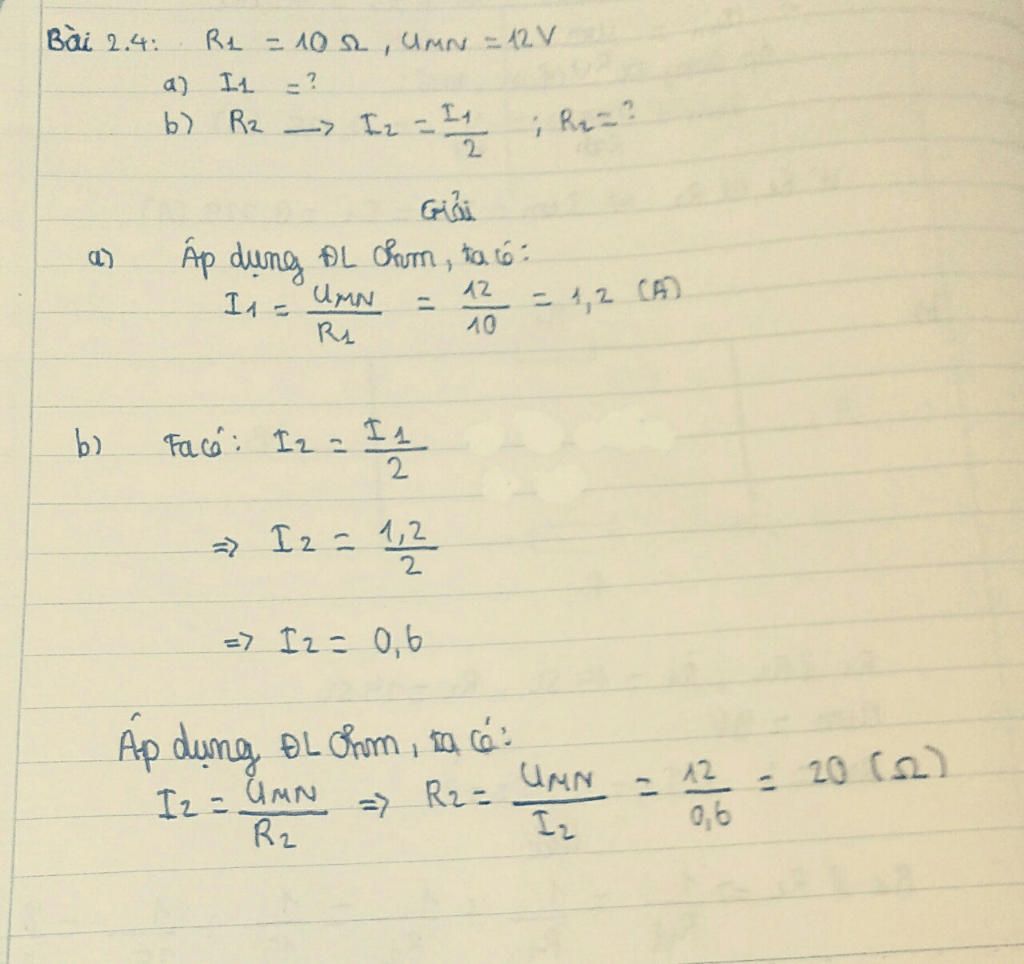 Bài 2.4: R1 = 10 Ω, UMN = 12V
a) I1 = ?
b) R2 → I2 = I1/2 ; R2 = ?
Giải
a) Áp dụng ĐL Ohm, ta có:
I1 = UMN/R1 = 12/10 = 1,2 (A)
b) Ta có: I2 = I1/2
=> I2 = 1,2/2
=> I2 = 0,6
Áp dụng ĐL Ohm, ta có:
I2 = UMN/R2 => R2 = UMN/I2 = 12/0,6 = 20 (Ω)